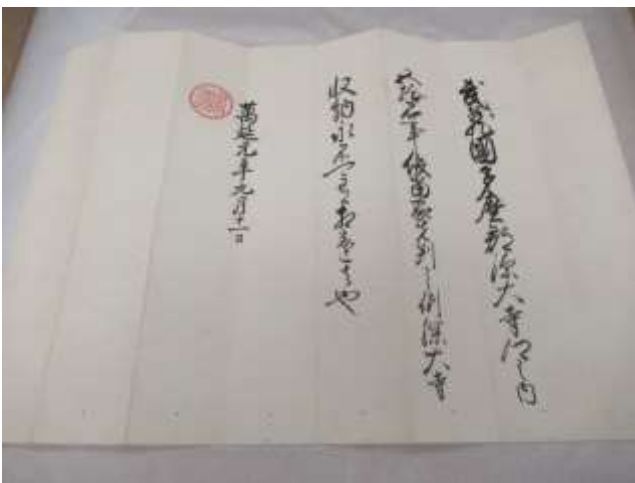 武蔵國多磨郡深大寺村之内
五拾石事依當家先判之例深大寺
収納永不可有相違者也
萬延元年九月十一日